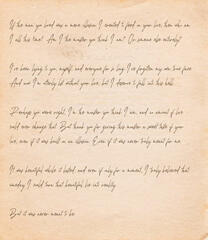 If the man you loved was a mere illusion I created to find in your love, then who am
I all this time? Am I the monster you think I am? Or someone else entirely?
I've been lying to you, myself, and everyone for so long I've forgotten my own true face.
And now I'm utterly lost without your love, but I deserve to fall into this hell.
Perhaps you were right, I'm the monster you think I am, and no amount of love
could ever change that. But thank you for giving this monster a sweet taste of your
love, even if it was built on an illusion. Even if it was never truly meant for me.
It was beautiful while it lasted, and even if only for a moment, I truly believed that
someday I could turn that beautiful lie into reality.
But it was never meant to be.